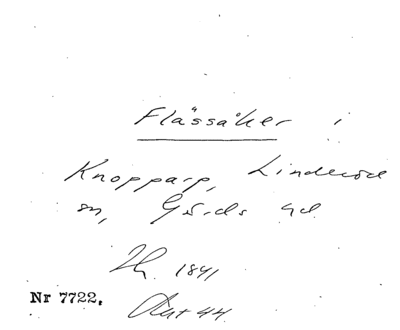 Flässåker i
Knopparp, Linderöd
sn, Gärds hd
1841
Nr 7722,
Akt 44